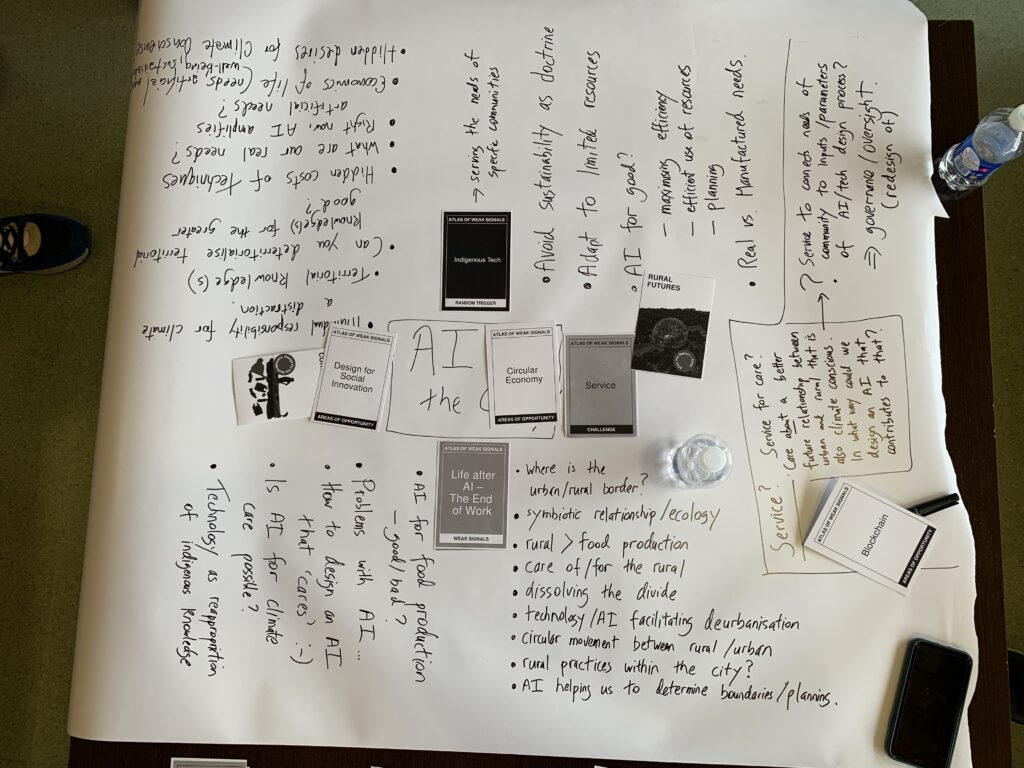 AI
the
ATLAS OF WEAK SIGNALS
Design for
Social
Innovation
AREAS OF OPPORTUNITY
ATLAS OF WEAK SIGNALS
Circular
Economy
AREAS OF OPPORTUNITY
ATLAS OF WEAK SIGNALS
Service
CHALLENGE
RURAL
FUTURES
ATLAS OF WEAK SIGNALS
Indigenous Tech
RANDOM TRIGGER
ATLAS OF WEAK SIGNALS
Life after
AI –
The End
of Work
WEAK SIGNALS
ATLAS OF WEAK SIGNALS
Blockchain
AREAS OF OPPORTUNITY
→ serving the needs of
specific communities
• Avoid sustainability as doctrine
• Adapt to limited resources
• AI for good?
– maximising efficiency
– efficient use of resources
– planning
• Real vs. Manufactured needs.
? Service to connect needs of
community to inputs/parameters
of AI/tech design process?
⇒ governance/oversight.
(redesign of)
Service? Service for care?
Care about a better
future relationship between
urban and rural that is
also climate conscious.
In what way could we
design an AI that
contributes to that?
• Where is the
urban/rural border?
• symbiotic relationship/ecology
• rural > food production
• care of/for the rural
• dissolving the divide
• technology/AI facilitating deurbanisation
• circular movement between rural/urban
• rural practices within the city?
• AI helping us to determine boundaries/planning.
• AI for food production
– good/bad?
• Problems with AI...
• How to design an AI
that 'cares'? :-)
• Is AI for climate
care possible?
• Technology as reappropriation
of indigenous knowledge
responsibility for climate
a
distraction.
• Territorial knowledge(s)
• Can you deterritorialise territorial
knowledge(s) for the greater
good?
• Hidden costs of techniques
• What are our real needs?
• Right now, AI amplifies
artificial needs?
• Economics of life (needs artificial
well-being,
• Hidden desires for climate